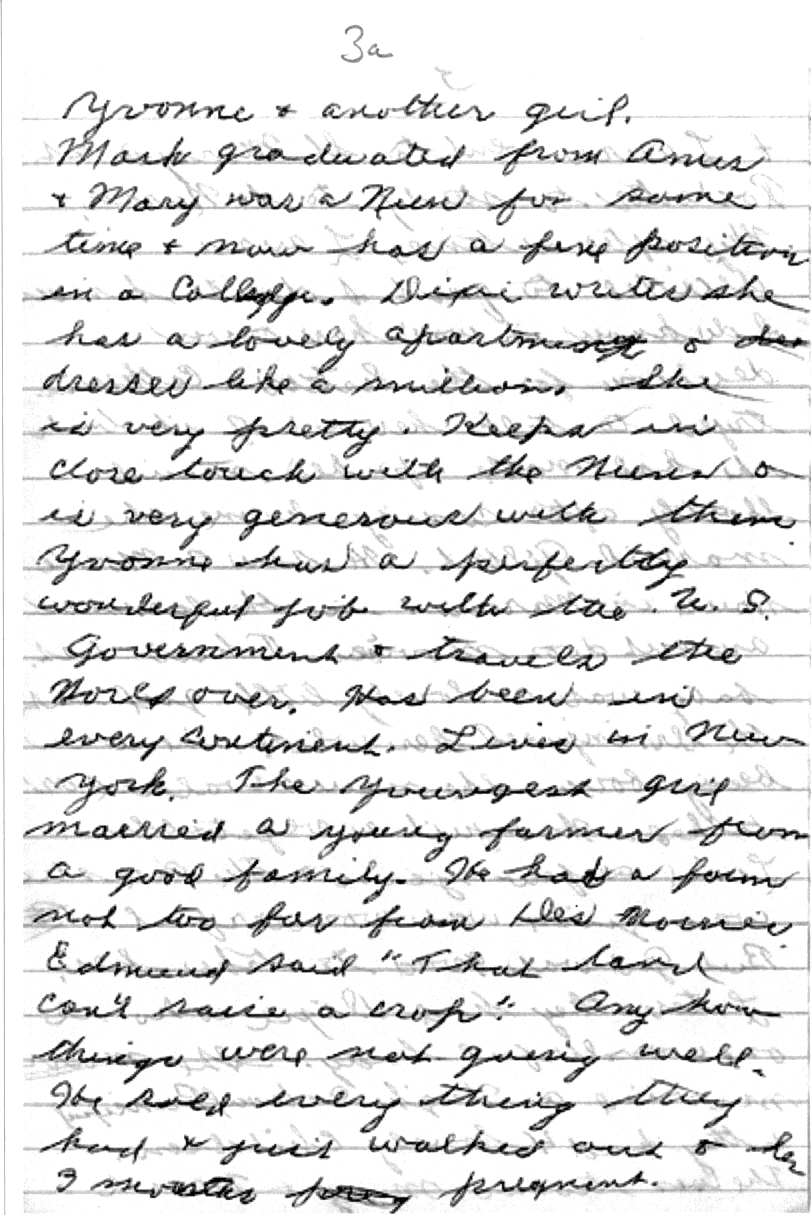 3a
Yvonne & another girl.
Mark graduated from Ames
& Mary was a Nun for some
time & now has a fine position
in a College. Dixie writes she
has a lovely apartment &
dresses like a million. She
is very pretty. Keeps in
close touch with the Nuns &
is very generous with them
Yvonne has a perfectly
wonderful job with the U.S.
Government & travels the
World over. Has been in
every continent. Lives in New
York. The youngest girl
married a young farmer from
a good family. He had a farm
not too far from Des Moines
Edmund said "That land
can't raise a crop". Any how
things were not going well.
He sold every thing they
had & just walked out &
months pregnent.